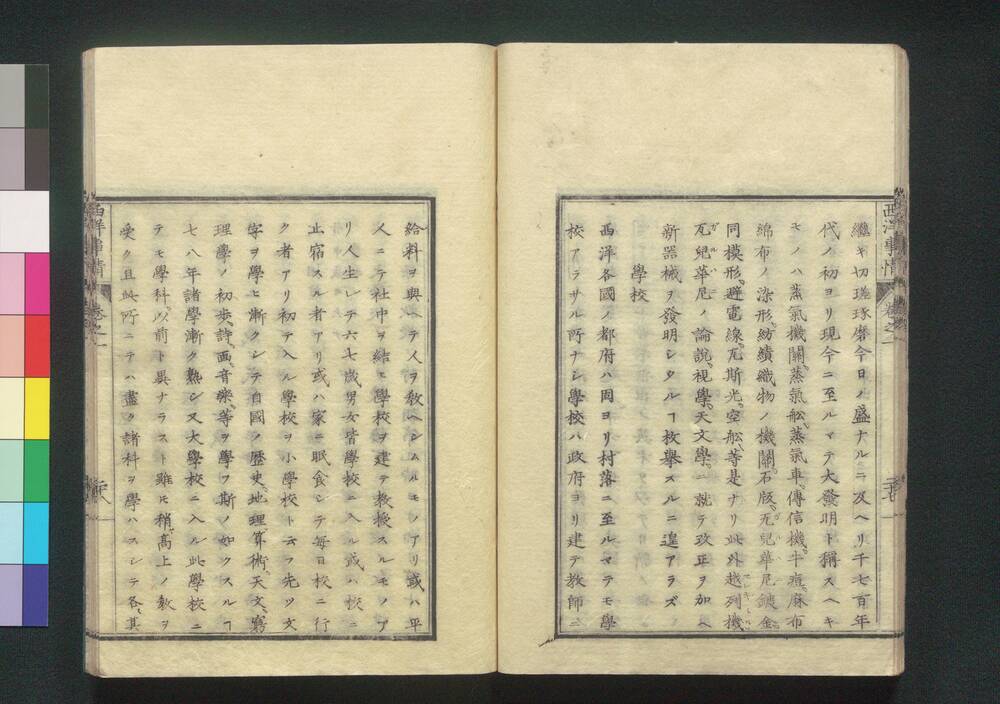 繼キ切瑳琢磨今日ノ盛ナルニ及ヘリ千七百年
代ノ初ヨリ現今ニ至ルマテ大發明ト稱スヘキ
モノハ蒸氣機關、蒸氣舩、蒸氣車、傳信機、牛痘、麻布
綿布ノ染形、紡績織物ノ機關、石版、瓦兒華尼鍍金、
同模形、避電線、瓦斯光、空舩、等是ナリ此外越列機、
瓦兒華尼ノ論說、視學、天文學、ニ就テ改正ヲ加ヘ
新器械ヲ發明シタルヿ枚擧スルニ遑アラズ
學校
西洋各國ノ都府ハ固ヨリ村落ニ至ルマテモ學
校アラサル所ナシ學校ハ政府ヨリ建テ教師ニ
西洋事情
卷之一
給料ヲ與ヘテ人ヲ敎ヘシムルモノアリ或ハ平
人ニテ社中ヲ結ヒ學校ヲ建テ教授スルモノア
リ人生レテ六七歳男女皆學校ニ入ル或ハ校ニ
止宿スル者アリ或ハ家ニ眠食シテ每日校ニ行
ク者アリ初テ入ル學校ヲ小學校ト云フ先ツ文
字ヲ學ヒ漸クシテ自國ノ歷史、地理、算術、天文、窮
理學ノ初歩、詩、画、音樂、等ヲ學フ斯ノ如クスルヿ
七八年諸學漸ク熟シ又大學校ニ入ル此學校ニ
テモ學科ハ以前ト異ナラスト雖𪜈稍高上ノ敎ヲ
受ク且此所ニテハ盡ク諸科ヲ學ハスシテ各其
西洋事情
卷之一